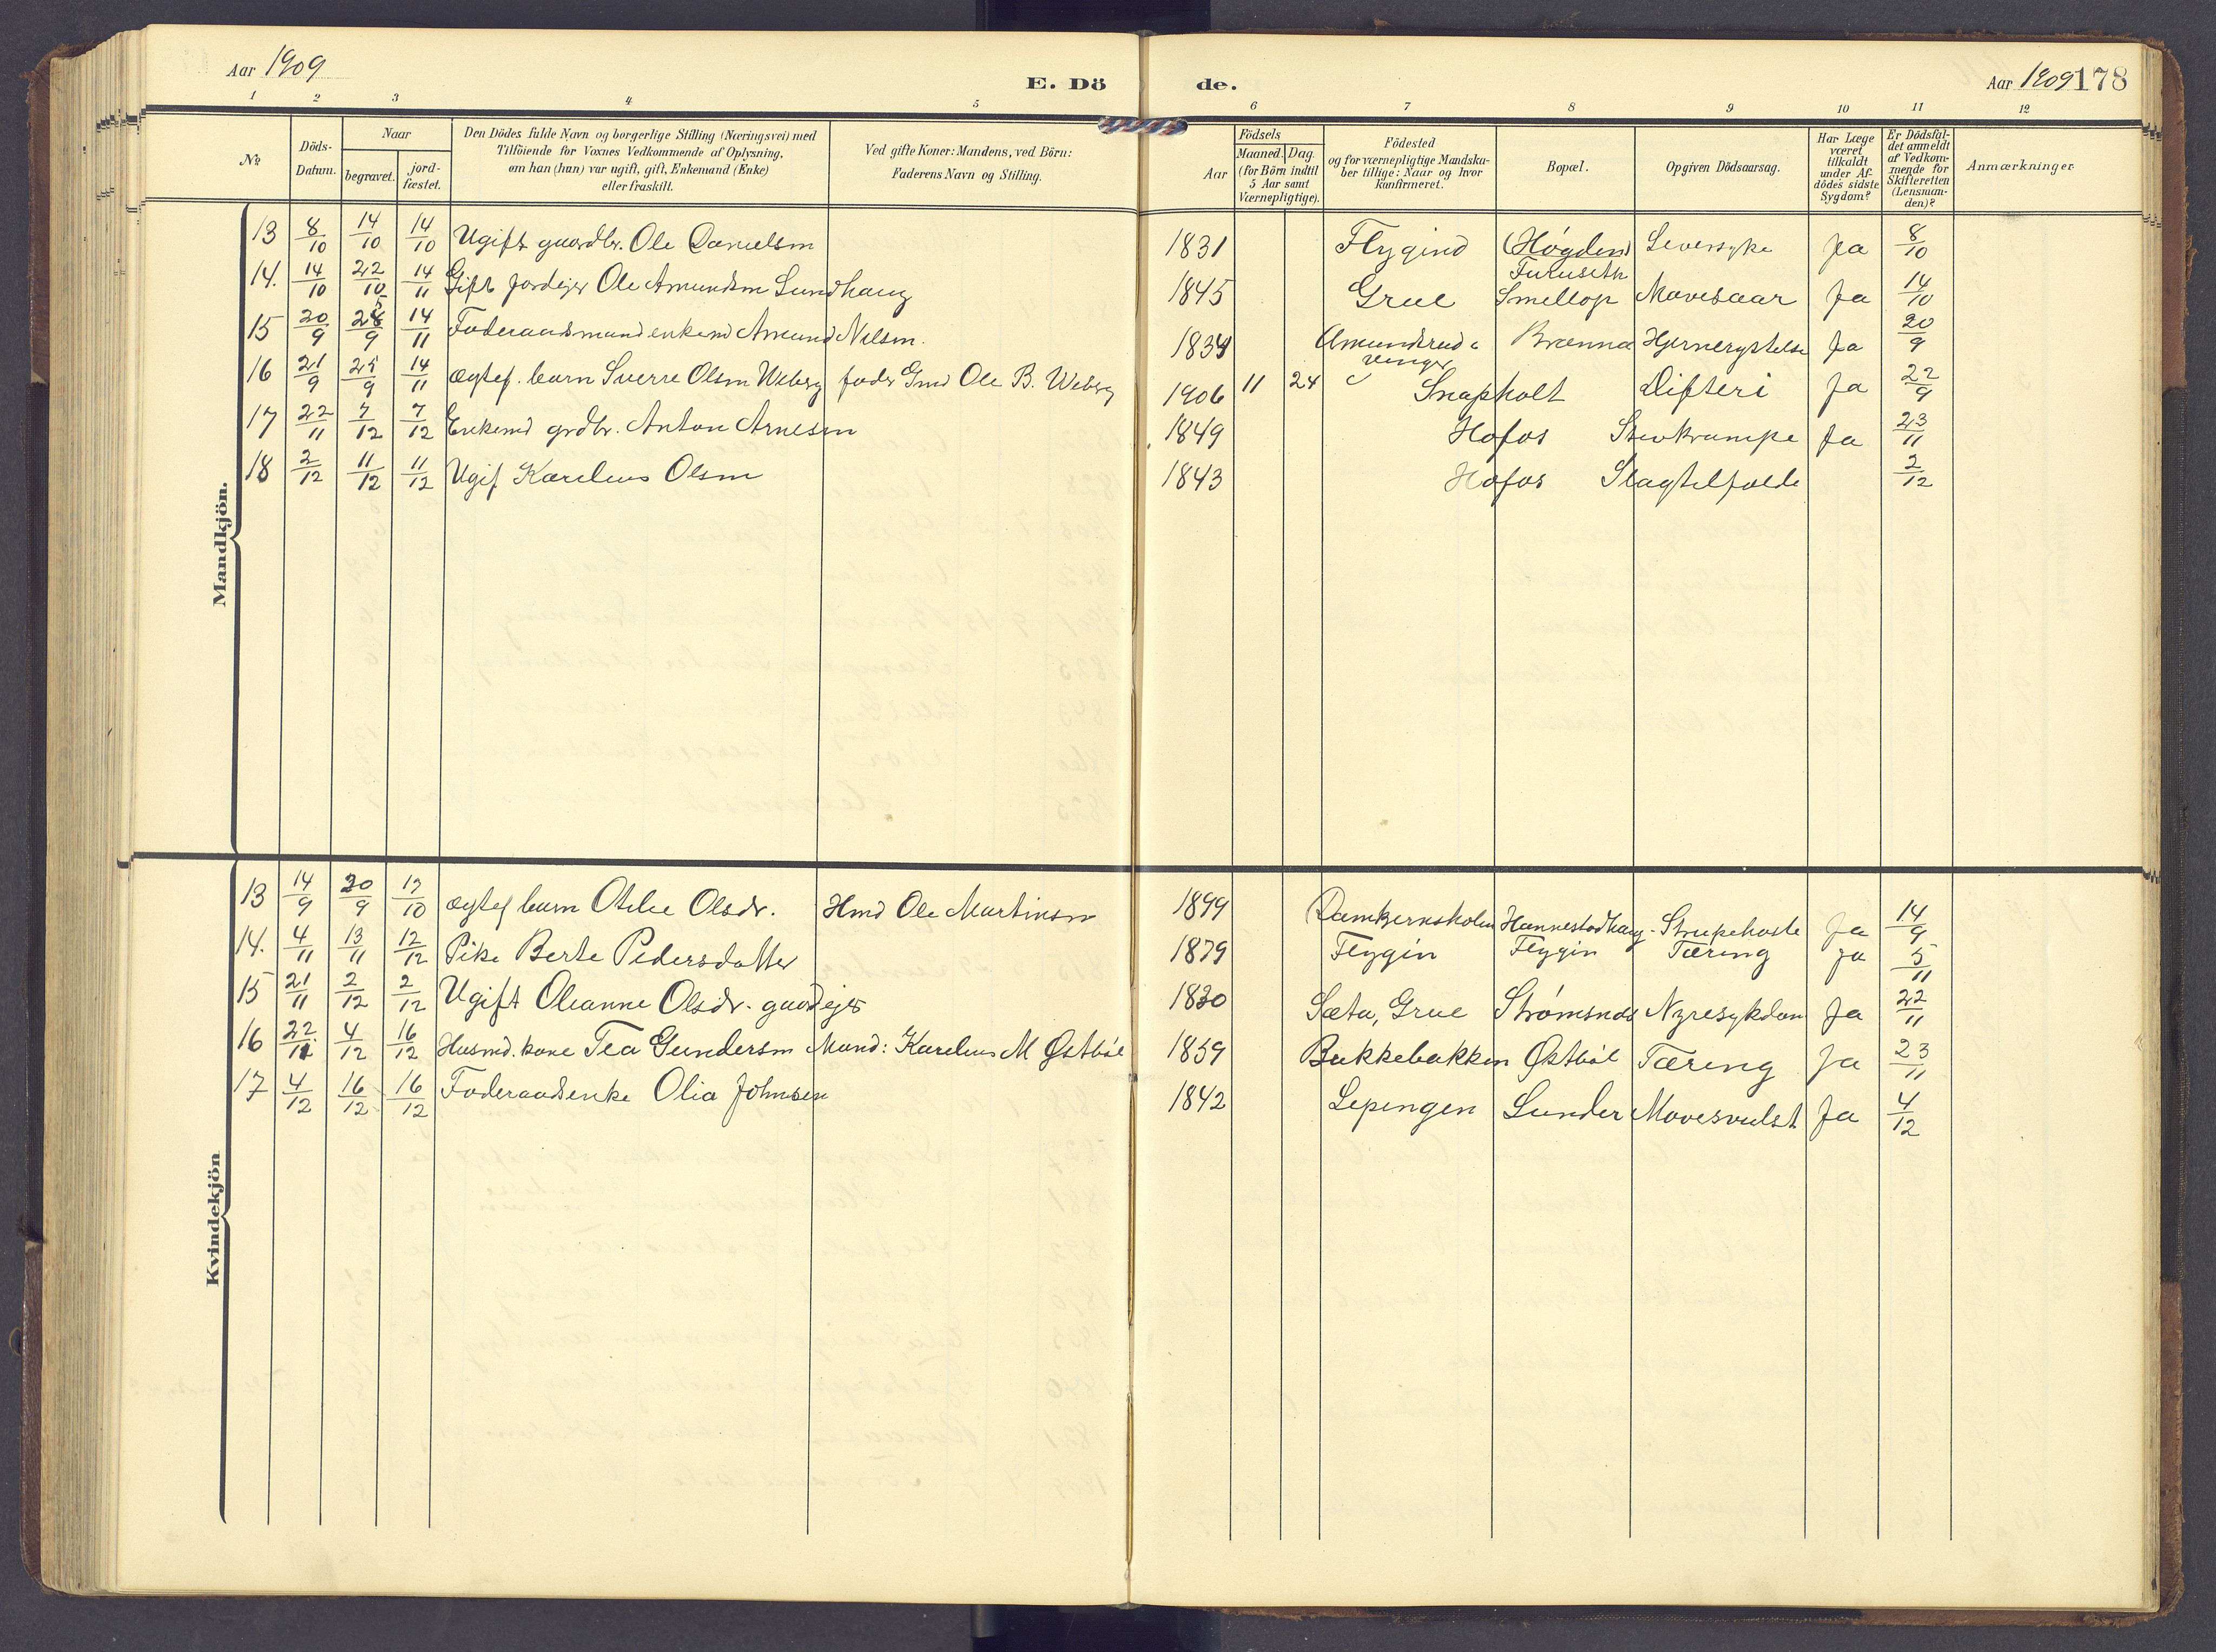 Aar 1909
E. Dö de.
Aar 1909 178
1 2 3 4 5 6 7 8 9 10 11 12
№
Döds-Datum.
Naar
begravet.
jord-fæstet.
Den Dödes fulde Navn og borgerlige Stilling (Næringsvei) med
Tilföiende for Voxnes Vedkommende af Oplysning,
om han (hun) var ugift, gift, Enkemand (Enke)
eller fraskilt.
Ved gifte Koner: Mandens, ved Börn:
Faderens Navn og Stilling.
Födsels
Aar
Maaned. Dag.
(for Börn indtil
5 Aar samt
Værnepligtige).
Födested
og for værnepligtige Mandska-
ber tillige: Naar og hvor
konfirmeret.
Bopæl.
Opgiven Dödsaarsag.
Har Læge
været
tilkaldt
under Af-
dödes sidste
Sygdom?
Er Dödsfal-
det anmeldt
af Vedkom-
mende for
Skifteretten
(Lensman-
den)?
Anmærkninger.
Mandkjön.
13 8/10 14/10 14/10 Ugift gaardbr. Ole Danielsen 1831 Flygind (Høgden) Furuseth Leversyke Ja 8/10
14. 14/10 22/10 14/11 Gift Jordejer Ole Amundsen Sundhaug 1845 Grue Smellop Mavesaar Ja 14/10
15 20/9 25/9 14/11 Foderaadsmand enkemd Amund Nilsen. 1834 Amundsrud Vinger Brænna Hjernerystelse Ja 20/9
16 21/9 25/9 14/11 Ægtef. barn Sverre Olsen Wiberg fader Gmd Ole B. Wiberg 1906 11 24 Snapholt Difteri Ja 22/9
17 22/11 7/12 7/12 Enkemd grdbr. Anton Arnesen 1849 Hofos Stivkrampe Ja 23/11
18 2/12 11/12 11/12 Ugif Karelius Olsen 1843 Hofos Slagtilfælde 2/12
Kvindekjön
13 14/9 20/9 12/10 Ægtef barn Otilie Olsdr. Hmd Ole Martinsen 1899 Damtjernsholm Hannestadhaug Strupehoste Ja 14/9
14. 4/11 13/11 12/12 Pike Berte Pedersdatter 1879 Flygin Flygin Tæring Ja 5/11
15 21/11 2/12 2/12 Ugift Oleanne Olsdr. gaardejer 1830 Sæta, Grue Strømsnæs Nyresykdom Ja 22/11
16 22/11 4/12 16/12 Husmd. kone Tea Gundersen Mand: Karelius M Østbøl 1859 Bukkebakken Østbøl Tæring Ja 23/11
17 4/12 16/12 16/12 Foderaadsenke Olia Johnsen 1842 Sepengen Sunder Mavesvulst Ja 4/12